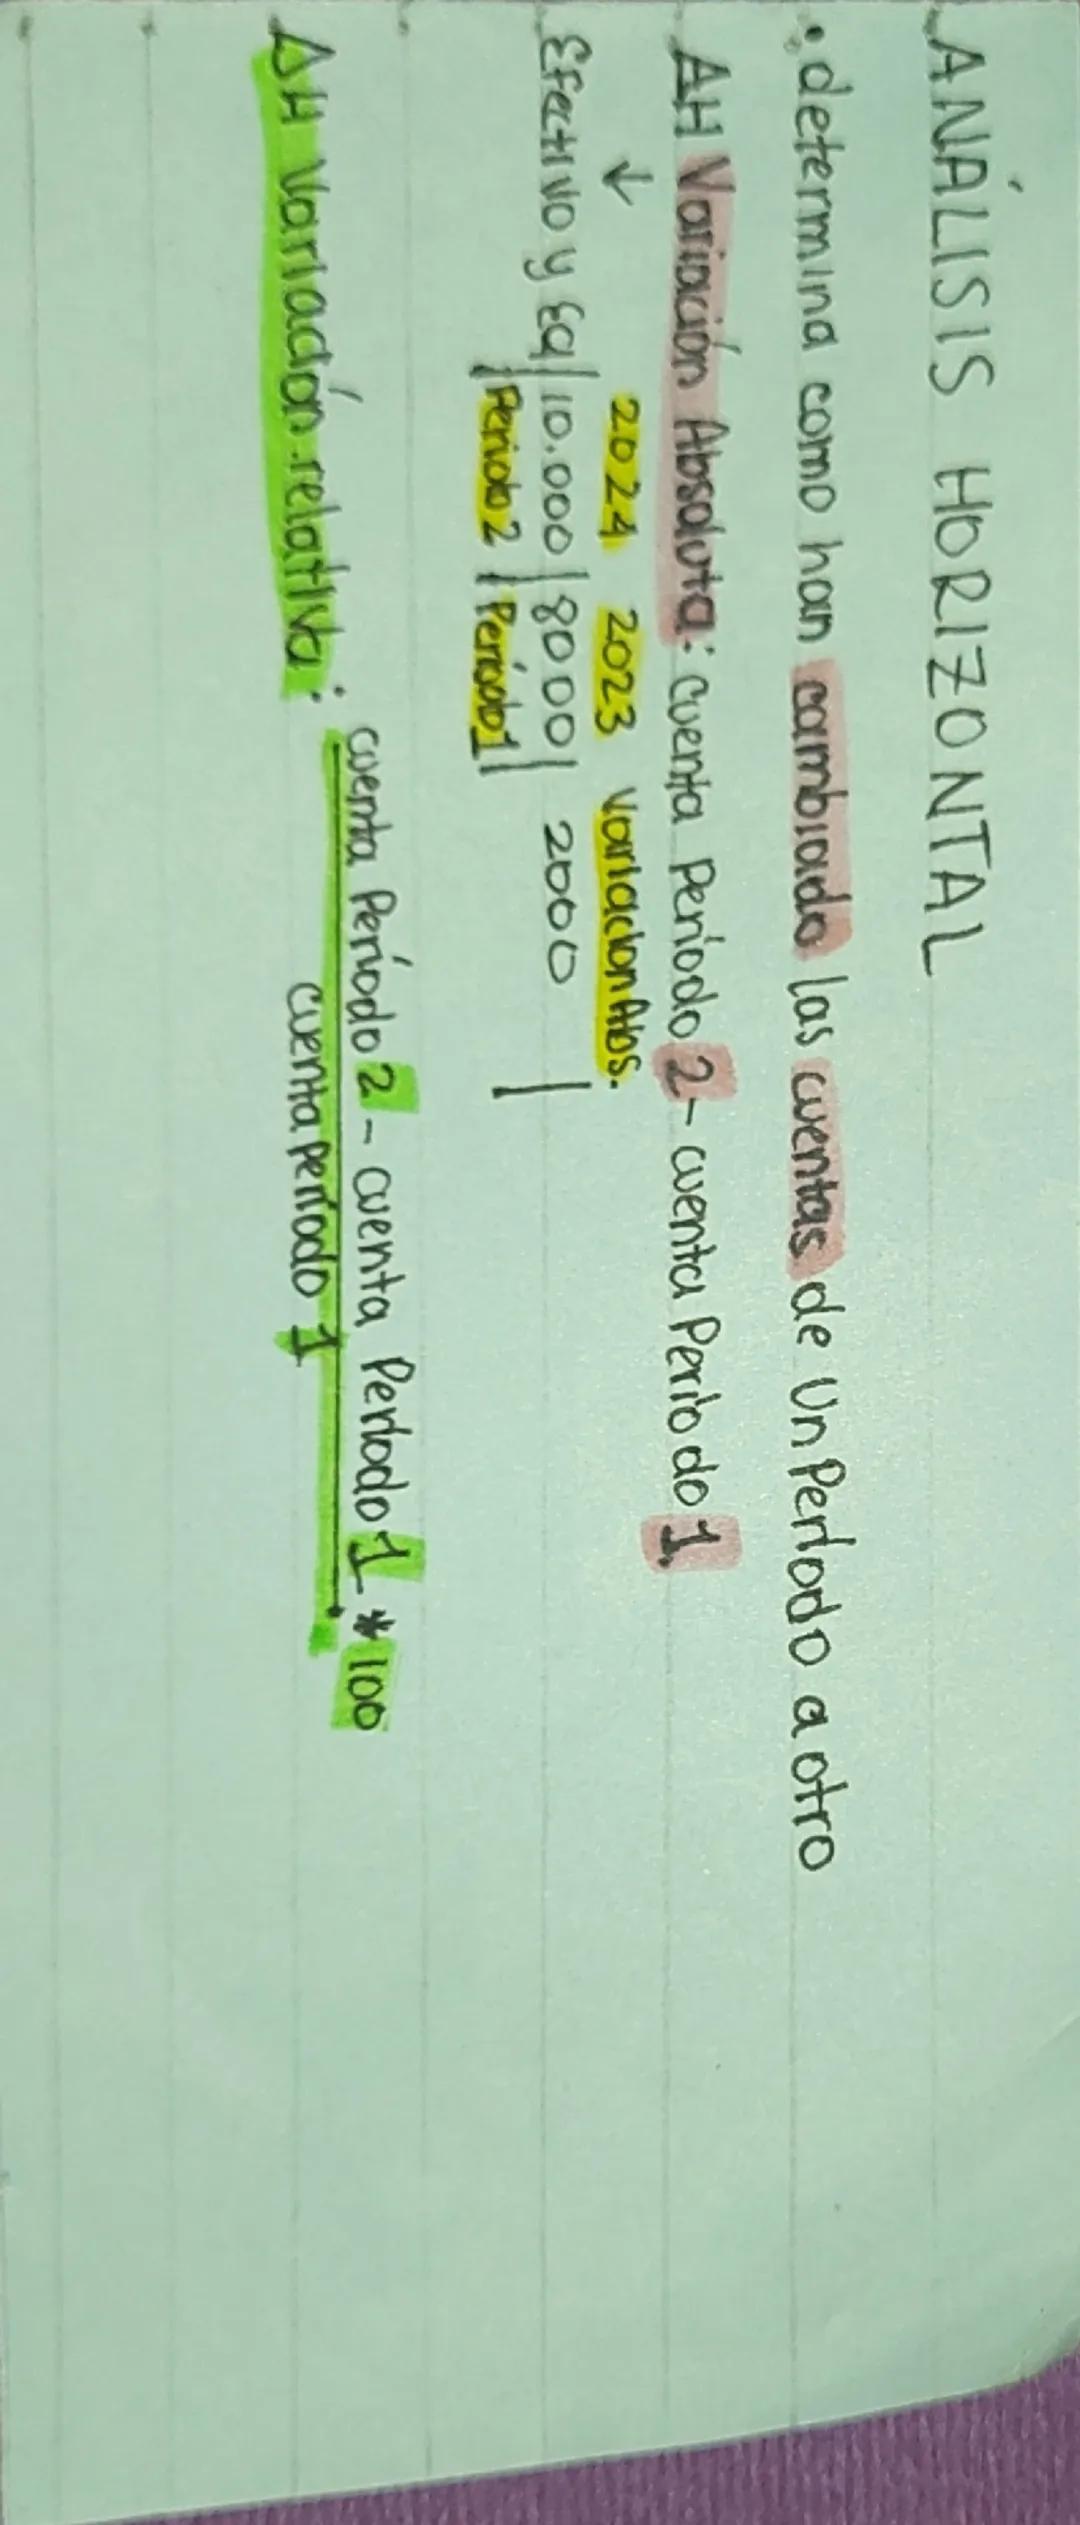 ANÁLISIS HORIZONTAL
• determina como han cambiado las cuentas de un Período a otro
AH Variación Absoluta: cuenta período 2 - cuenta Período 1.
↓ 2024 2023 Variación Abs.
Efectivo y Eq | 10.000 | 8000 | 2000 |
| Periodo 2 | Período 1 |
AH Variación relativa: cuenta Período 2 - cuenta Período 1 * 100
cuenta período 1